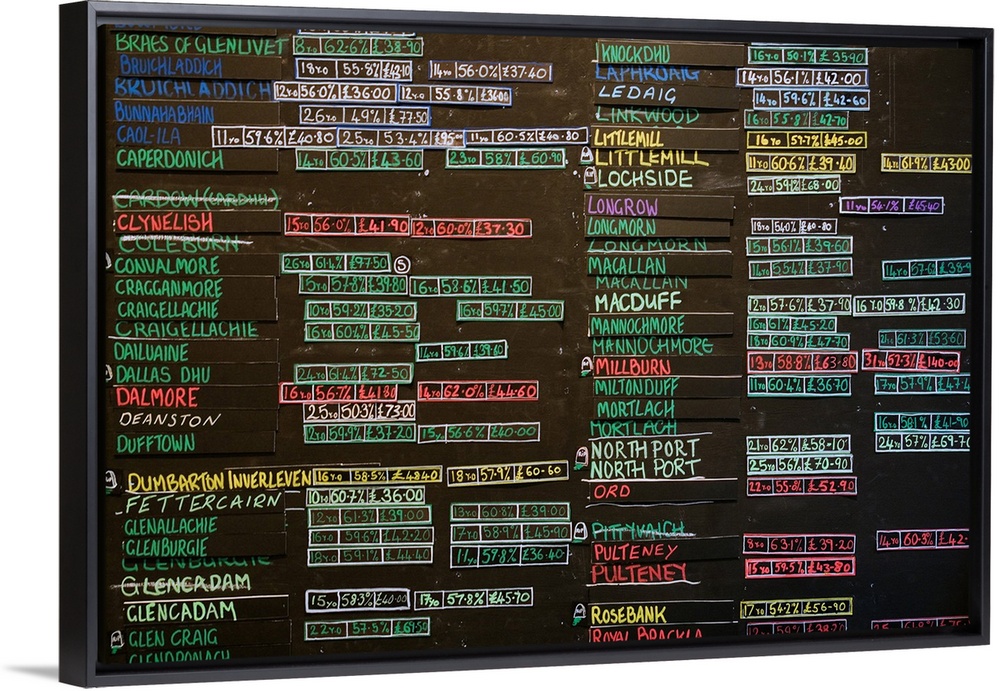 BRAES OF GLENLIVET 8YO 62·6% £38-90
BRUICHLADDICH 18YO 55·8% £42·10 14YO 56·0% £37·40
BRUICHLADDICH 12YO 56·0% £36·00 12YO 55·8% £36·00
BUNNAHABHAIN 26YO 49% £77·50
CAOL-ILA 11YO 59·6% £40·80 25YO 53·4% £95·00 11YO 60·5% £40·80
CAPERDONICH 14YO 60·5% £43-60 23YO 58% £60·90
CARDOW (CARDHU)
CLYNELISH 15YO 56·0% £41·90 12YO 60·0% £37·30
COLEBURN
CONVALMORE 26YO 61·4% £77·50 S
CRAGGANMORE 15YO 57·8% £39·80 16YO 58·6% £41·50
CRAIGELLACHIE 10YO 59·2% £35·20 16YO 59·7% £45·00
CRAIGELLACHIE 16YO 60·4% £45·50
DAILUAINE 14YO 59·6% £39·60
DALLAS DHU 24YO 61·4% £72·50
DALMORE 16YO 56·7% £41·81 14YO 62·0% £44·60
DEANSTON 25YO 50·3% £73·00
DUFFTOWN 12YO 59·9% £37·20 15YO 56·6% £40·00
DUMBARTON INVERLEVEN 16YO 58·5% £48·40 18YO 57·9% £60-60
FETTERCAIRN 10YO 60·7% £36·00
12YO 61·3% £39·00 13YO 60·8% £39·00
GLENALLACHIE 16YO 59·6% £42·20 17YO 58·9% £45·90
GLENBURGIE 18YO 59·1% £44·40 11YO 57·8% £36·40
GLENBURGIE
GLENCADAM
GLENCADAM 15YO 58·3% £40·00 17YO 57·8% £45·70
GLEN CRAIG 22YO 57·5% £61·50
GLENDRONACH
KNOCKDHU 16YO 50·1% £35·90
LAPHROAIG 14YO 56·1% £42·00
LEDAIG 14YO 59·6% £42-60
LINKWOOD 16YO 55·8% £42·70
LITTLEMILL 16YO 57·7% £45·00
LITTLEMILL 11YO 60·6% £39·40 14YO 61·9% £43·00
LOCHSIDE 24YO 59·1% £68·00
LONGROW 11YO 54·1% £45·40
LONGMORN 18YO 54·0% £40·80
LONGMORN 15YO 56·1% £39·60
MACALLAN 14YO 55·4% £37·90 14YO 57·6% £38·9
MACALLAN
MACDUFF 12YO 57·6% £37·90 16YO 59·8% £42·30
MANNOCHMORE 16YO 61% £45·20
MANNOCHMORE 18YO 60·9% £47·70 61·3% £53·60
MILLBURN 13YO 58·8% £63·80 31YO 57·3% £140·00
MILTONDUFF 11YO 60·4% £36·70 17YO 57·9% £47·4
MORTLACH
MORTLACH 16YO 58·1% £41-90
NORTH PORT 21YO 62% £58-10 24YO 57% £69·70
NORTH PORT 25YO 56% £70-90
ORD 22YO 55·8% £52·90
PITTYVAICH
PULTENEY 8YO 63·1% £39·20 14YO 60·8% £42·
PULTENEY 15YO 59·5% £43·80
ROSEBANK 17YO 54·2% £56-90
ROYAL BRACKLA 12YO 59% £38·20